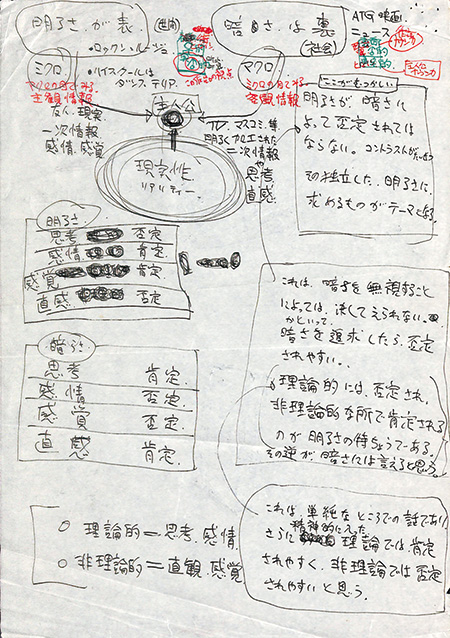 明るさ、が表、
(世間)
暗さ、は裏
(社会)
ATG映画
ニュース
・ロックンルージュ
ミクロ
・ハイスクールは
ダンステリア
マクロ
主観情報
ミクロの目でみる
客観情報
主人公
友人、現実
一次情報
感情、感覚
TV、マスコミ、等
明るく加工された
二次情報
や思考
直感
現実性
リアリティー
ここがむつかしい
明るさが暗さに
よって否定されては
ならない。コントラストが
その独立した、明るさに、
求めるものがテーマと
明るさ
思考 否定
感情 肯定
感覚 肯定
直感 否定
暗さ
思考 肯定
感情 否定
感覚 否定
直感 肯定
これは、暗さを無視すること
によっては、決してえられない。
かといって、
暗さを追求したら、否定
されやすい。
理論的には、否定され、
非理論的な所で肯定される
のが明るさの特ちょうである。
その逆が、暗さには言えると思う。
これは、単純なところでの話であり
さらに精神的に入った
理論では肯定
されやすく、非理論では否定
されやすいと思う。
○ 理論的＝思考、感情
○ 非理論的＝直観、感覚